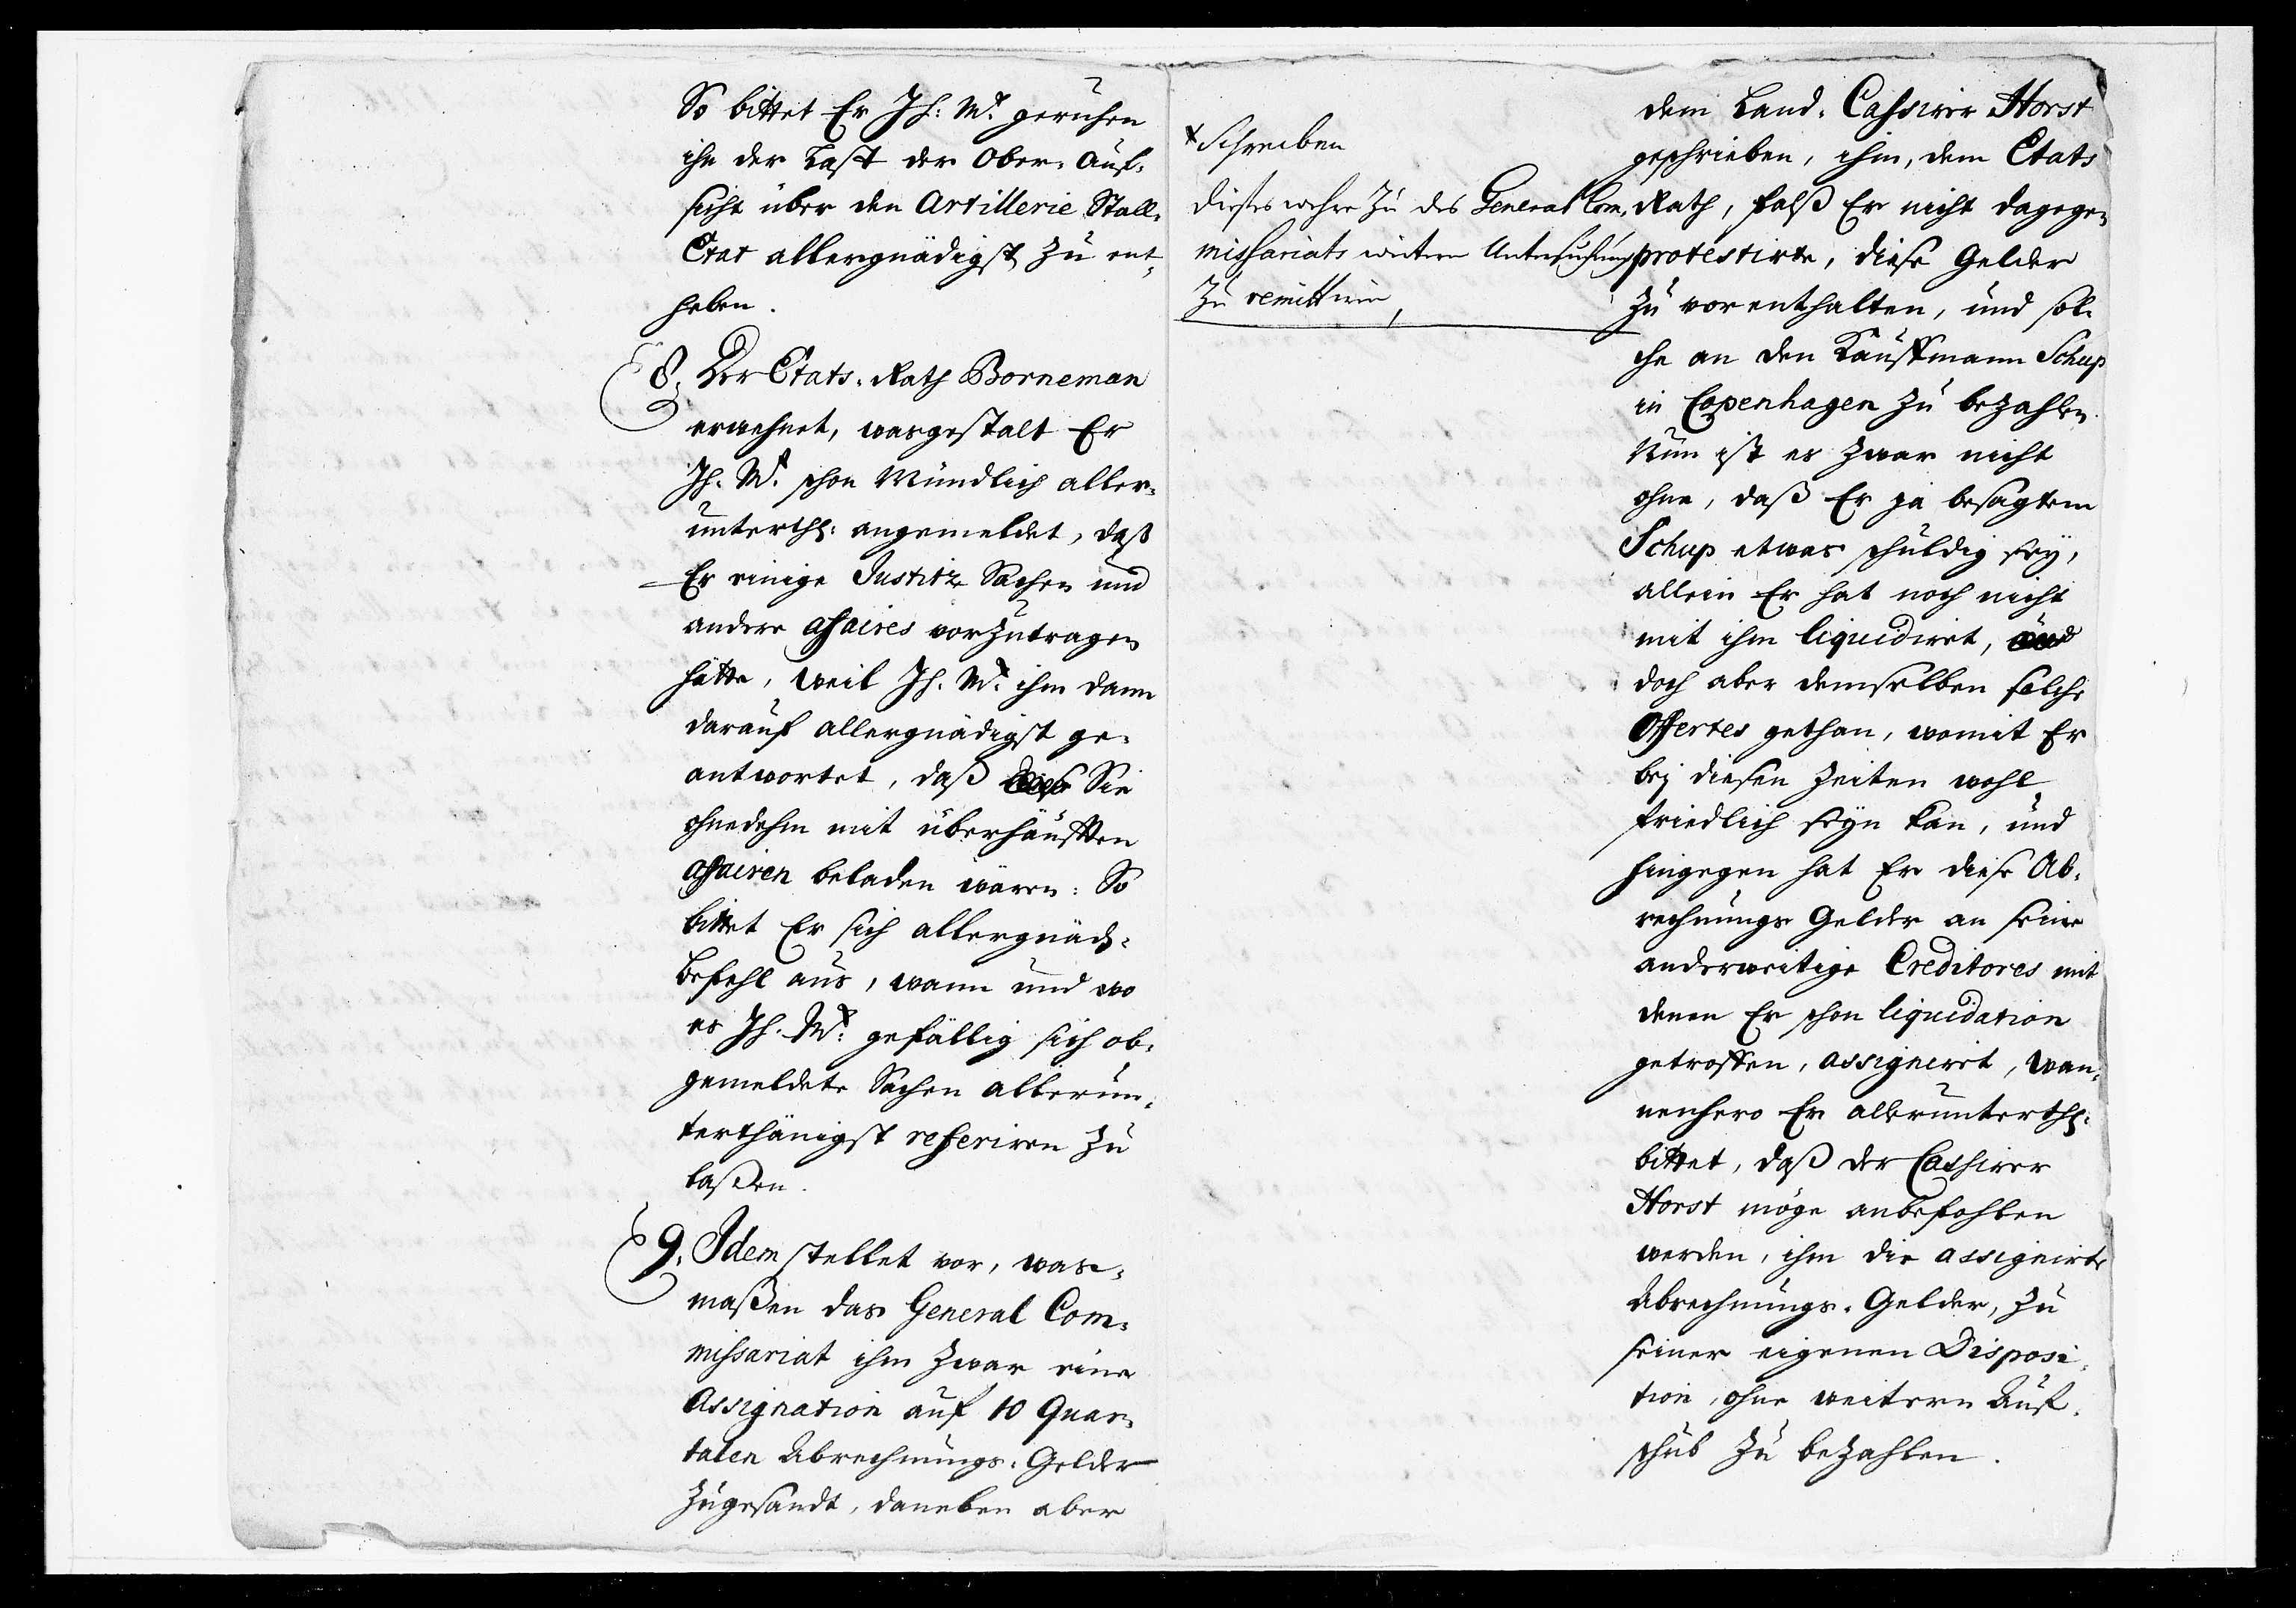 So bittet Er Ih: Mt. geruhen
ihn der Last der Ober- Auf-
sicht über den Artillerie Stall-
Etat allergnädigst zu ent-
heben.
8. Der Etats-Rath Borneman
erwehnet, wasgestalt Er
Ih. Mt. schon Mündlich aller-
unterth: angemeldet, daß
Er einige Justitz Sachen und
andere affaires vorzutragen
hätte, weil Ih. Mt. ihm dann
darauf allergnädigst ge-
antwortet, daß Sie
ohnedehm mit überhäufften
affairen beladen wären: So
bittet Er sich allergnäd-
Befehl aus, wann und wo
es Ih. Mt. gefällig sich ob-
gemeldete Sachen allerun-
terthänigst referiren zu
laßen.
9. Idem stellet vor, was-
maßen das General Com-
missariat ihm zwar eine
Assignation auf 10 Quar-
talen Abrechnungs-Gelder
zugesandt, daneben aber
+ Schreiben
Dieses wehre zu des General Com-
missariats weitern Untersuchung
zu remittiren,
dem Land-Cassirer Horst
geschrieben, ihm, dem Etats
Rath, falß Er nicht dagegen
protestirte, diese Gelder
zu vorenthalten, und sol-
che an den Kauffmann Schup
in Copenhagen zu bezahlen.
Nun ist es zwar nicht
ohne, daß Er ja besagtem
Schup etwas schuldig sey,
allein Er hat noch nicht
mit ihm liquidiret, und
doch aber demselben solche
Offertes gethan, womit Er
bej diesen Zeiten wohl
friedlich seyn kan, und
hingegen hat Er diese Ab-
rechnungs Gelder an seine
anderweitige Creditores mit
denen Er schon liquidation
getroffen, assigniret, wan-
nenhero Er allerunterth:
bittet, daß der Cassirer
Horst möge anbefohlen
werden, ihm die assignirte
Abrechnungs-Gelder, zu
seiner eigenen Disposi-
tion, ohne weitern Auf-
schub zu bezahlen.